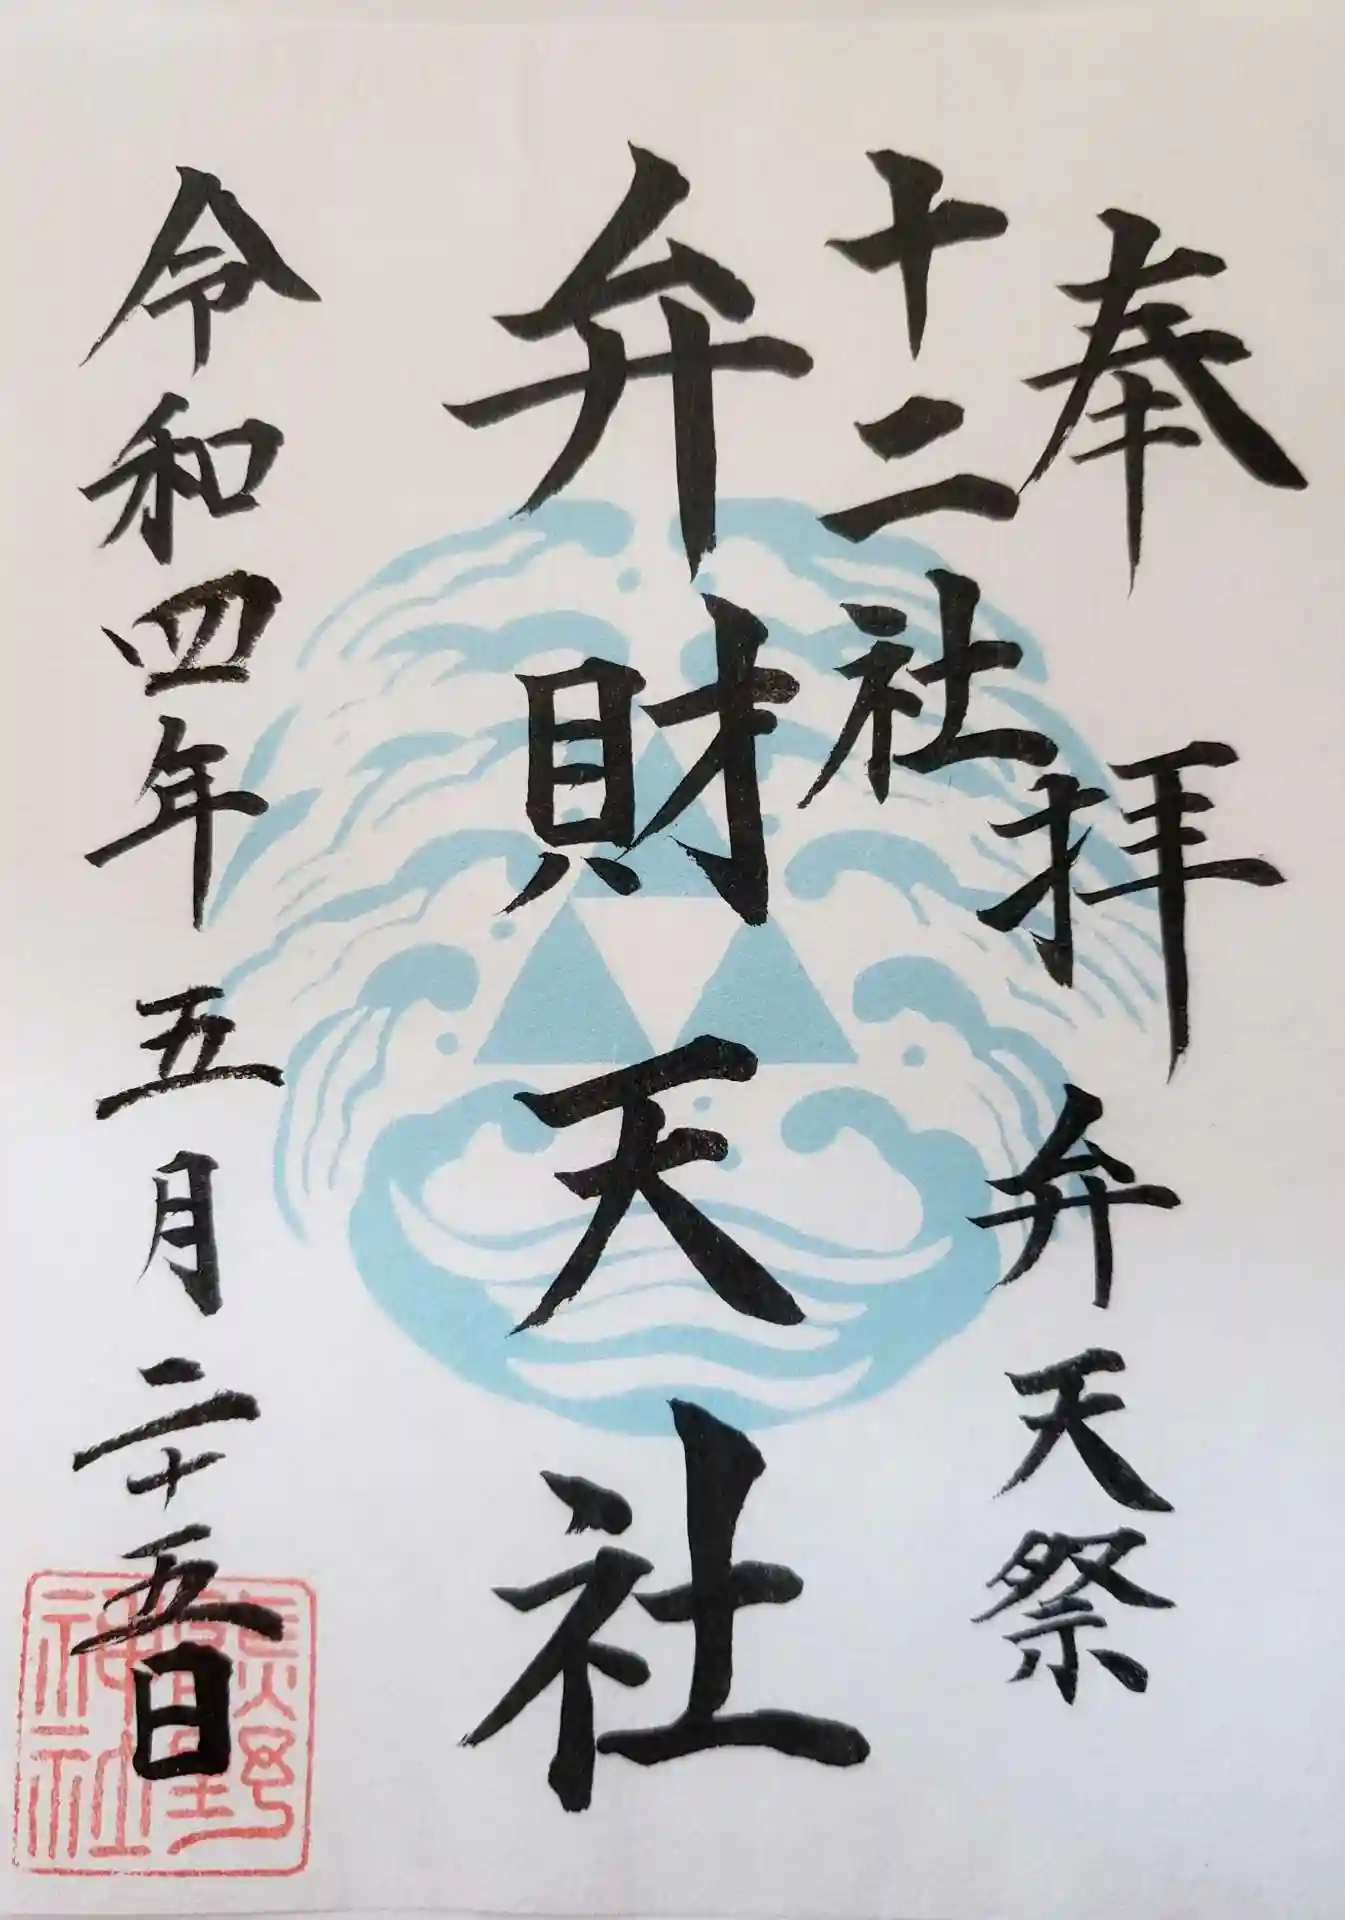 奉拝 弁天祭
十二社
弁財天社
令和四年五月二十五日
熊野
神社